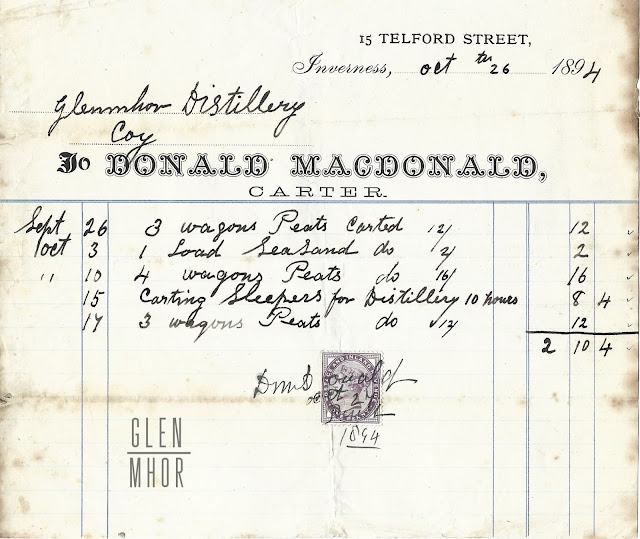 15 TELFORD STREET,
Inverness, Oct 26th 1894
Glenmhor Distillery
Coy
To DONALD MACDONALD,
CARTER.
Sept 26 3 wagons Peats Carted 12/ 12
Oct 3 1 Load SeaSand do 2/ 2
" 10 4 wagons Peats do 16/ 16
15 Carting Sleepers for Distillery 10 hours 8 4
17 3 wagons Peats do 12/ 12
2 10 4
27
1894
GLEN
MHOR